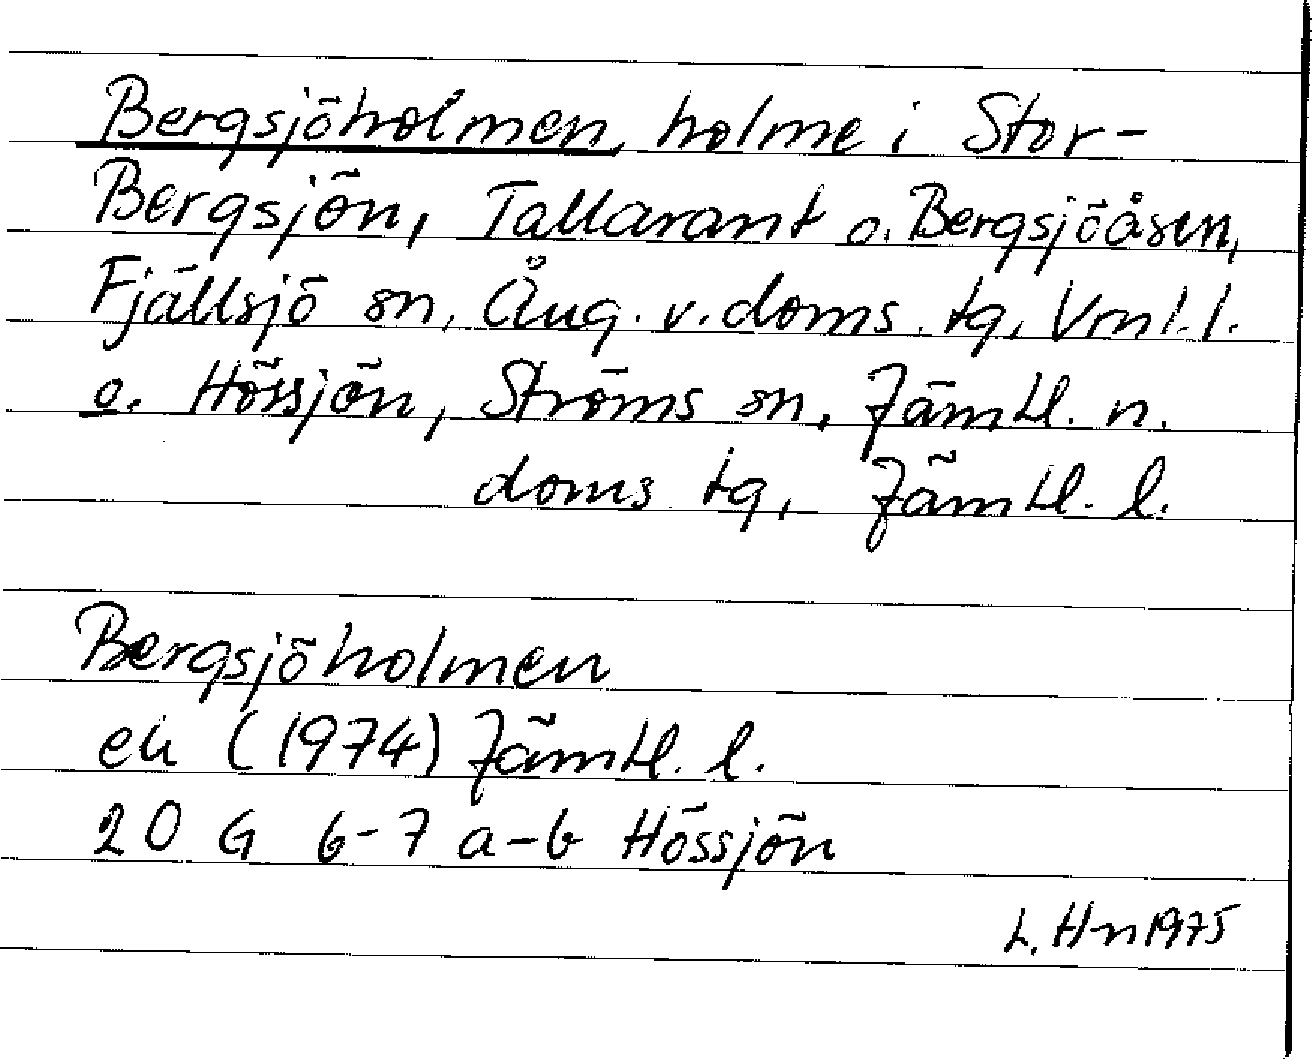 Bergsjöholmen, holme i Stor-
Bergsjön, Tallarant o. Bergsjöåsen,
Fjällsjö sn, Ång. v. doms. tg, Vrnl. l.
o. Hössjön, Ströms sn, Jämtl. n.
doms tg, Jämtl. l.
Bergsjöholmen
ek (1974) Jämtl. l.
20 G 6-7 a-b Hössjön
L. Hn 1975